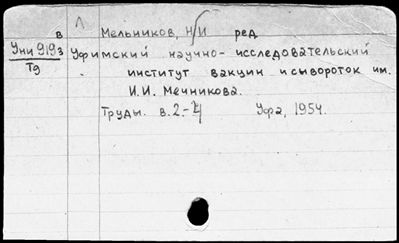 в Л Мельников, Н.И ред
Уни 919з Уфимский научно-исследовательский
Тд институт вакцин и сывороток им.
И.И. Мечникова.
Труды. в.2.-4 Уфа, 1954.